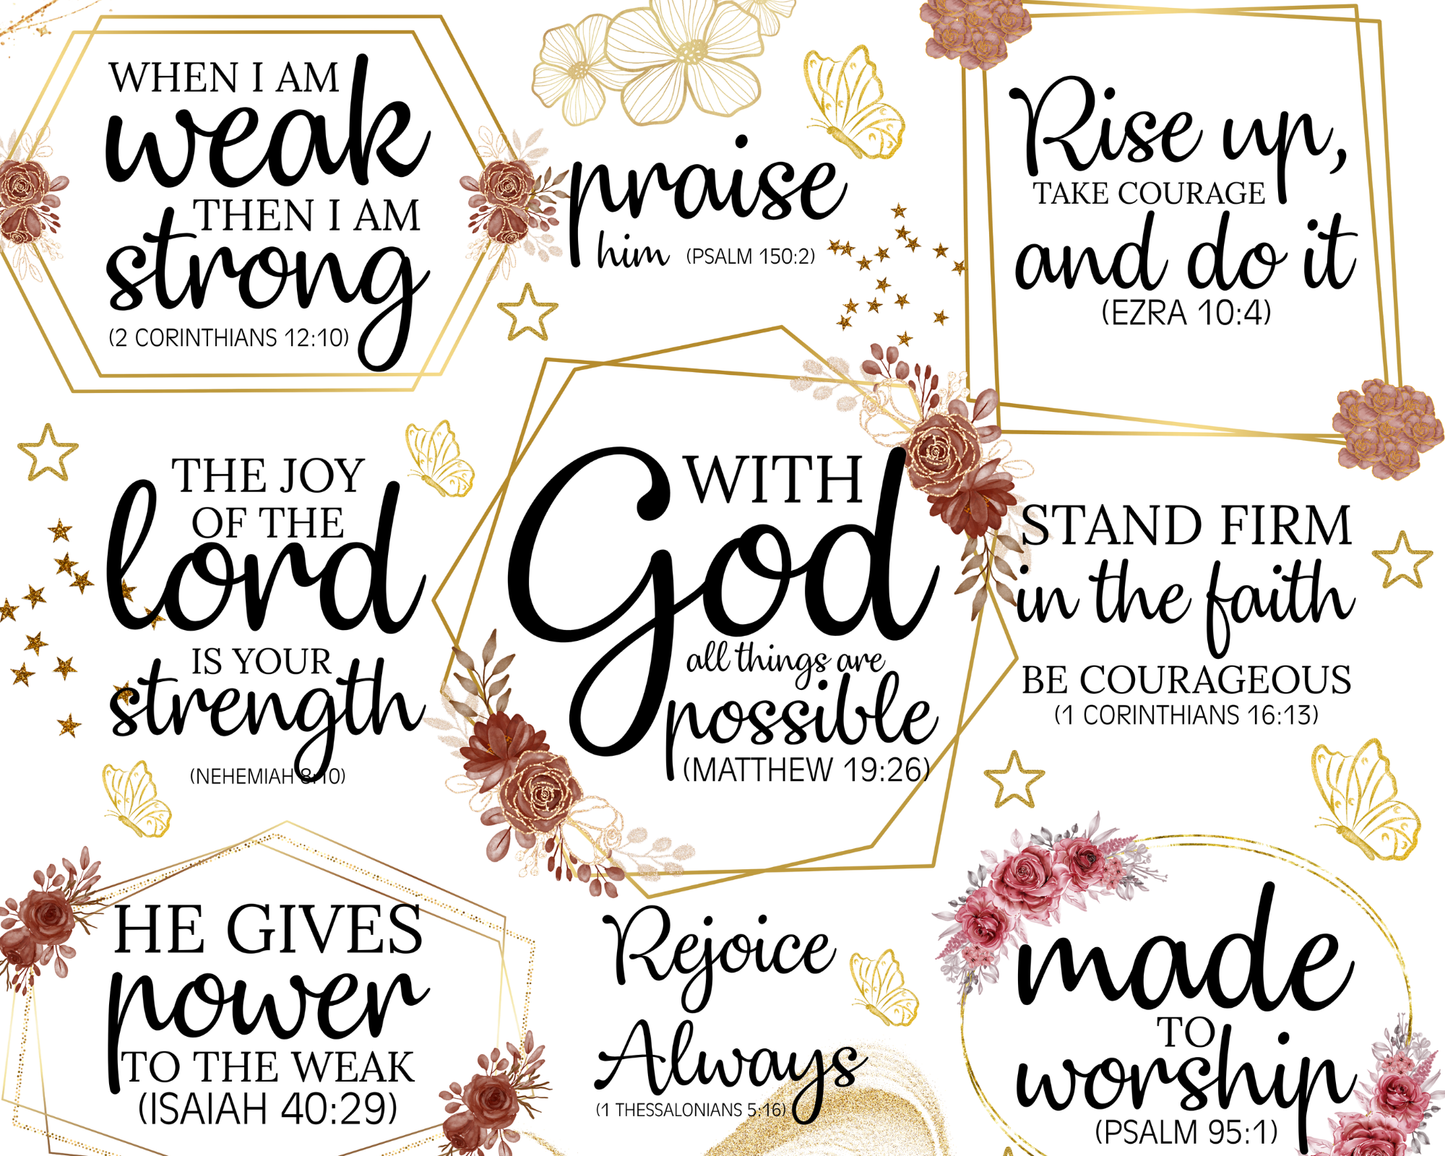 WHEN I AM
weak
THEN I AM
strong
(2 CORINTHIANS 12:10)
praise
him (PSALM 150:2)
Rise up,
TAKE COURAGE
and do it
(EZRA 10:4)
THE JOY
OF THE
lord
IS YOUR
strength
(NEHEMIAH 8:10)
WITH
God
all things are
possible
(MATTHEW 19:26)
STAND FIRM
in the faith
BE COURAGEOUS
(1 CORINTHIANS 16:13)
HE GIVES
power
TO THE WEAK
(ISAIAH 40:29)
Rejoice
Always
(1 THESSALONIANS 5:16)
made
TO
worship
(PSALM 95:1)